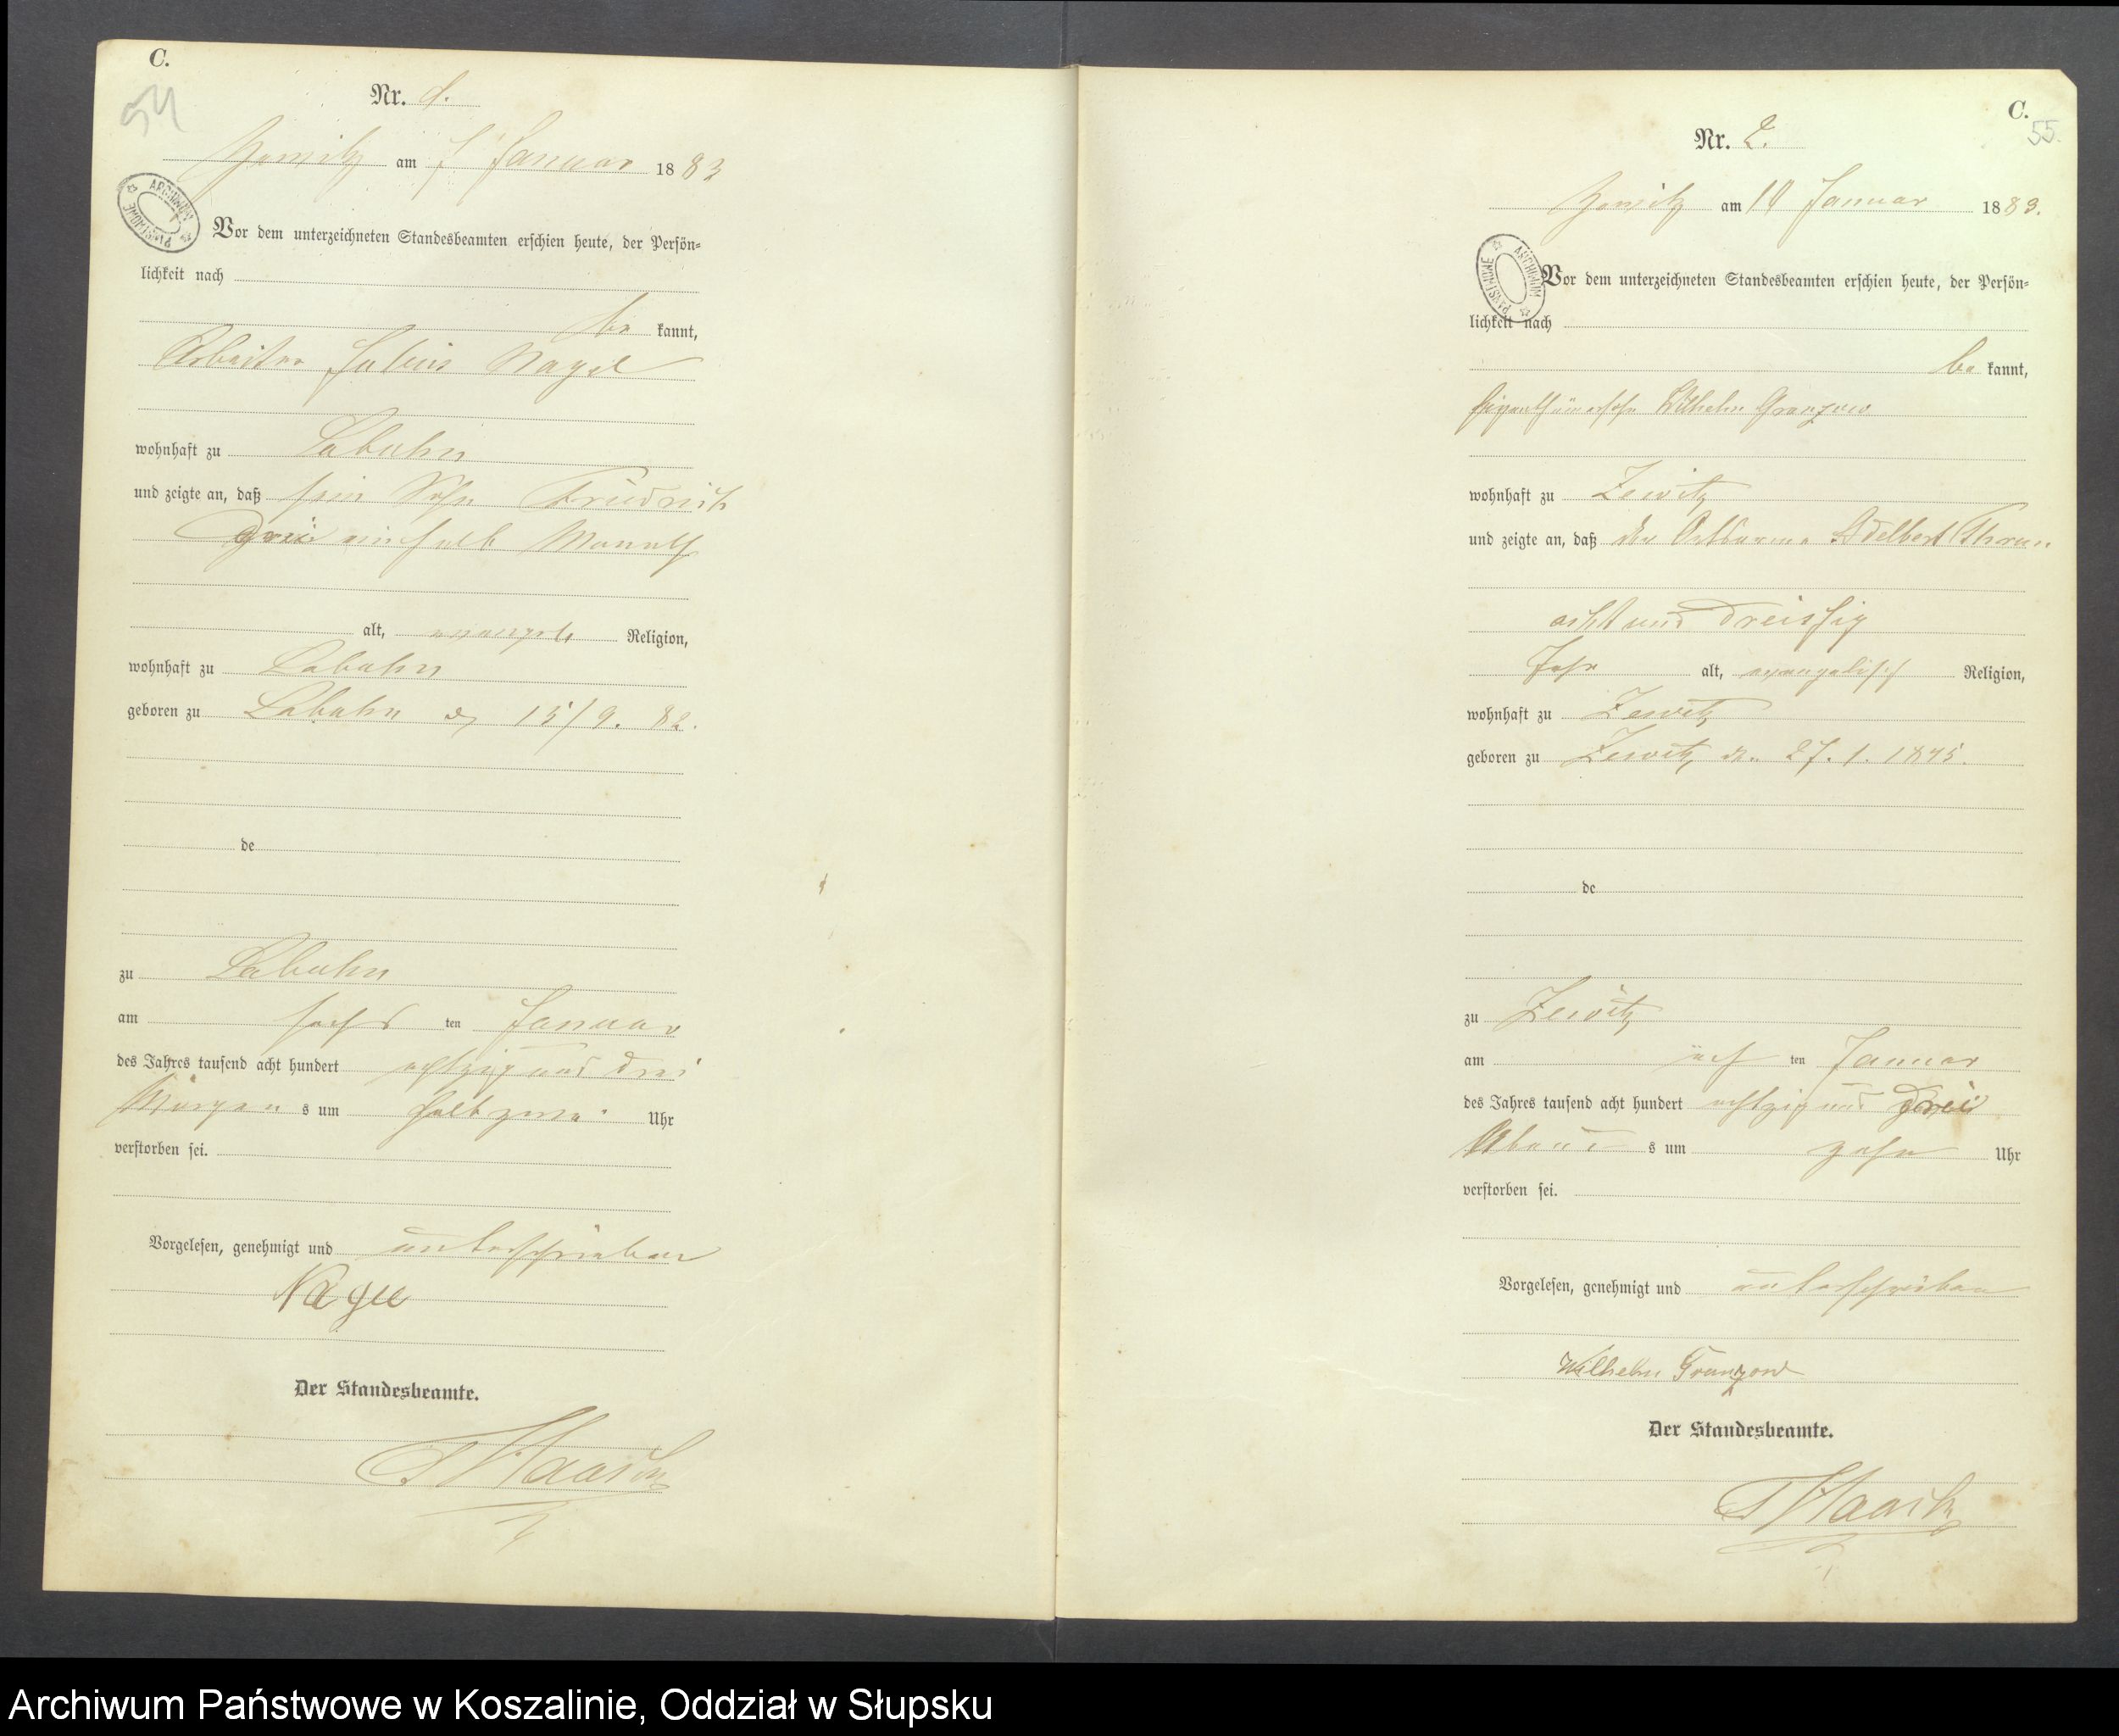 C.
54
Nr. 1.
Zewitz am Januar 1883
ARCHIWUM PAŃSTWOWE
Vor dem unterzeichneten Standesbeamten erschien heute, der Persön=
lichkeit nach
be kannt,
Arbeiter Julius Nagel
wohnhaft zu Labuhn
und zeigte an, daß sein Sohn Friedrich
drei einhalb Monath
alt, evangels Religion,
wohnhaft zu Labuhn
geboren zu Labuhn d 15/9. 82.
de
zu Labuhn
am sechs ten Januar
des Jahres tausend acht hundert achtzig und drei
Morgen s um halb zwei Uhr
verstorben sei.
Vorgelesen, genehmigt und unterschrieben
Nagel
Der Standesbeamte.
C.
55.
Nr. 2.
Zewitz am 10 Januar 1883.
ARCHIWUM PAŃSTWOWE
Vor dem unterzeichneten Standesbeamten erschien heute, der Persön=
lichkeit nach
be kannt,
Wilhelm Granzow
wohnhaft zu Zewitz
und zeigte an, daß der Ortsarme Adelbert
acht und dreissig
Jahr alt, evangelisch Religion,
wohnhaft zu Zewitz
geboren zu Zewitz, d. 27. 1. 1845.
de
zu Zewitz
am ten Januar
des Jahres tausend acht hundert achtzig und drei
Abend s um zehn Uhr
verstorben sei.
Vorgelesen, genehmigt und unterschrieben
Wilhelm Granzow
Der Standesbeamte.
Archiwum Państwowe w Koszalinie, Oddział w Słupsku